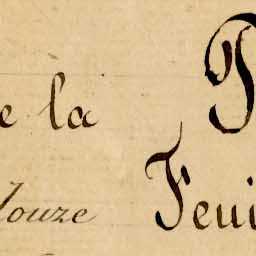 e la P
louze Feui